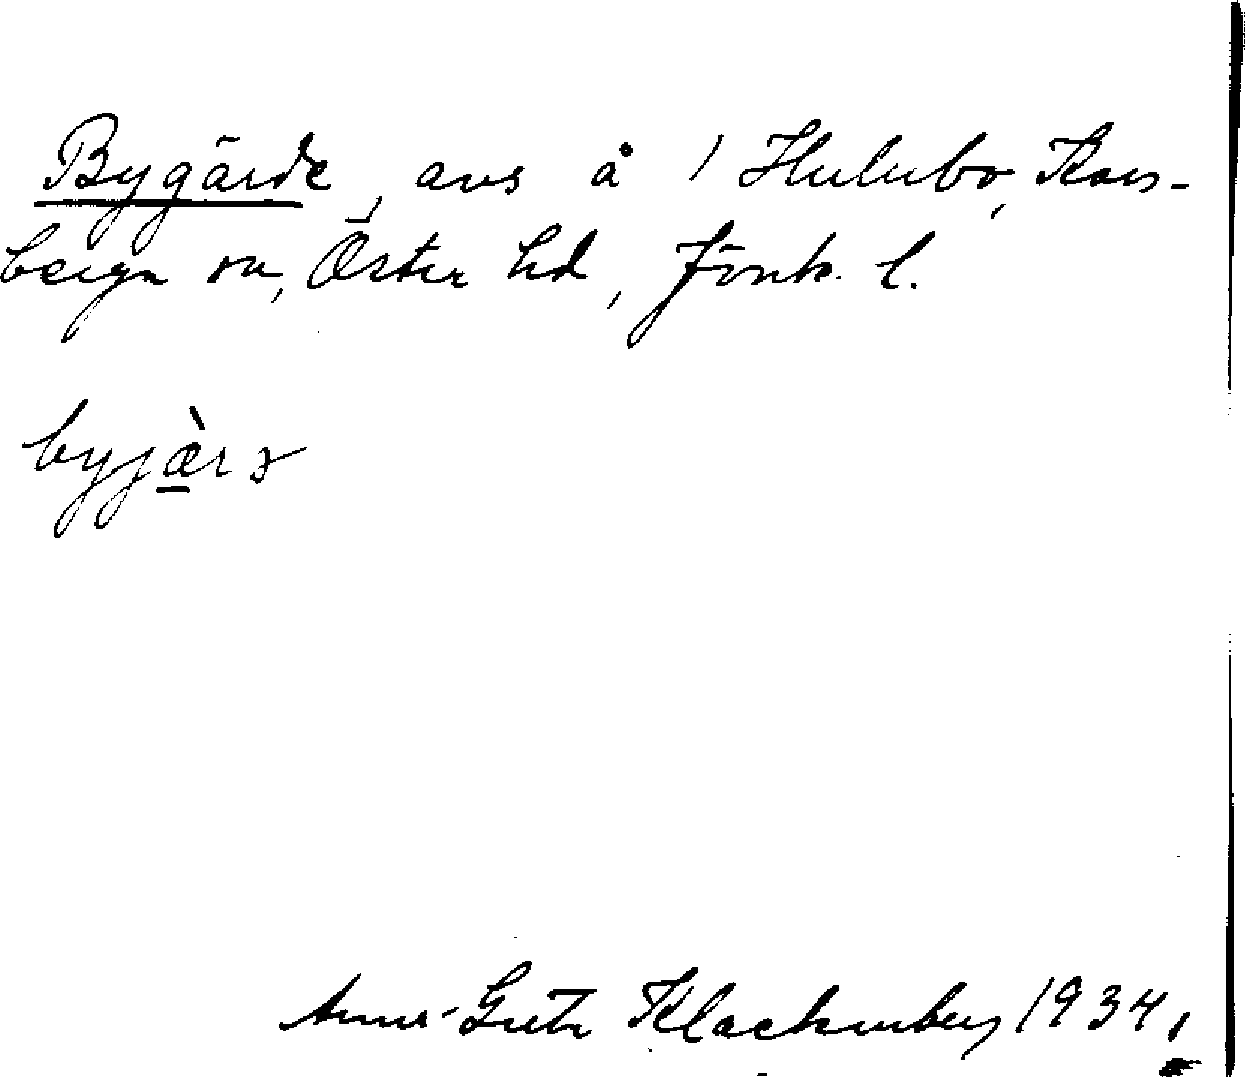 Bygärde, avs å 1 Hulubo, Kors-
berga sn, Östra hd, Jönk. l.
byjæ̀rə
Anna-Greta Klackenberg 1934.